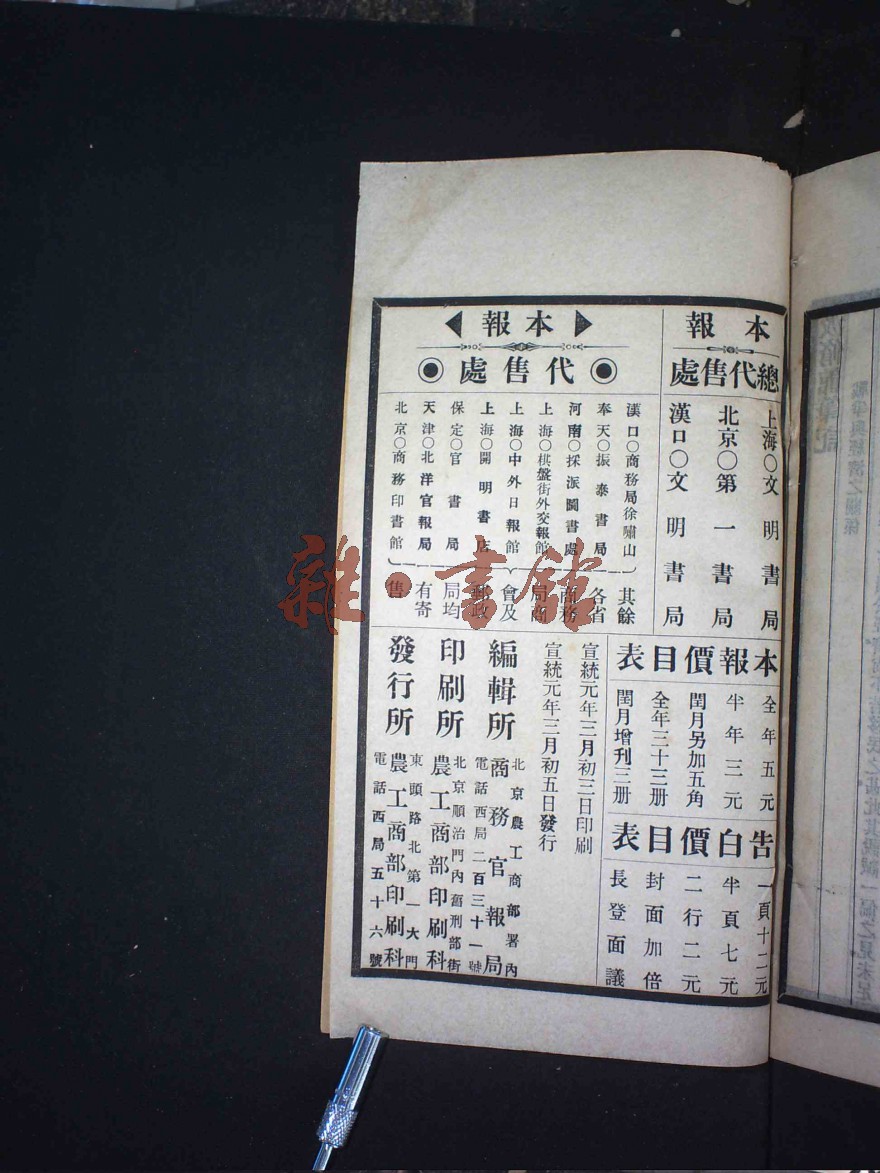 本報
總代售處
上海〇文明書局
北京〇第一書局
漢口〇文明書局
本報
代售處
漢口〇商務局徐嘯山
奉天〇振泰書局
河南〇採派圖書處
上海〇棋盤街外交報館
上海〇中外日報館
上海〇開明書店
保定〇官書局
天津〇北洋官報局
北京〇商務印書館
其餘
各省
商務
局商
會及
郵政
局均
有寄
售
本報價目表
全年五元
半年三元
閏月另加五角
全年三十三册
閏月增刊三册
告白價目表
一頁十二元
半頁七元
二行二元
封面加倍
長登面議
宣統元年三月初三日印刷
宣統元年三月初五日發行
編輯所
北京農工商部署內
商務官報局
電話西局二百三十一號
印刷所
北京順治門內舊刑部街
農工商部印刷科
發行所
東頭路北第一大門
農工商部印刷科
電話西局五十六號
雜·書館
戰爭與經濟之關係